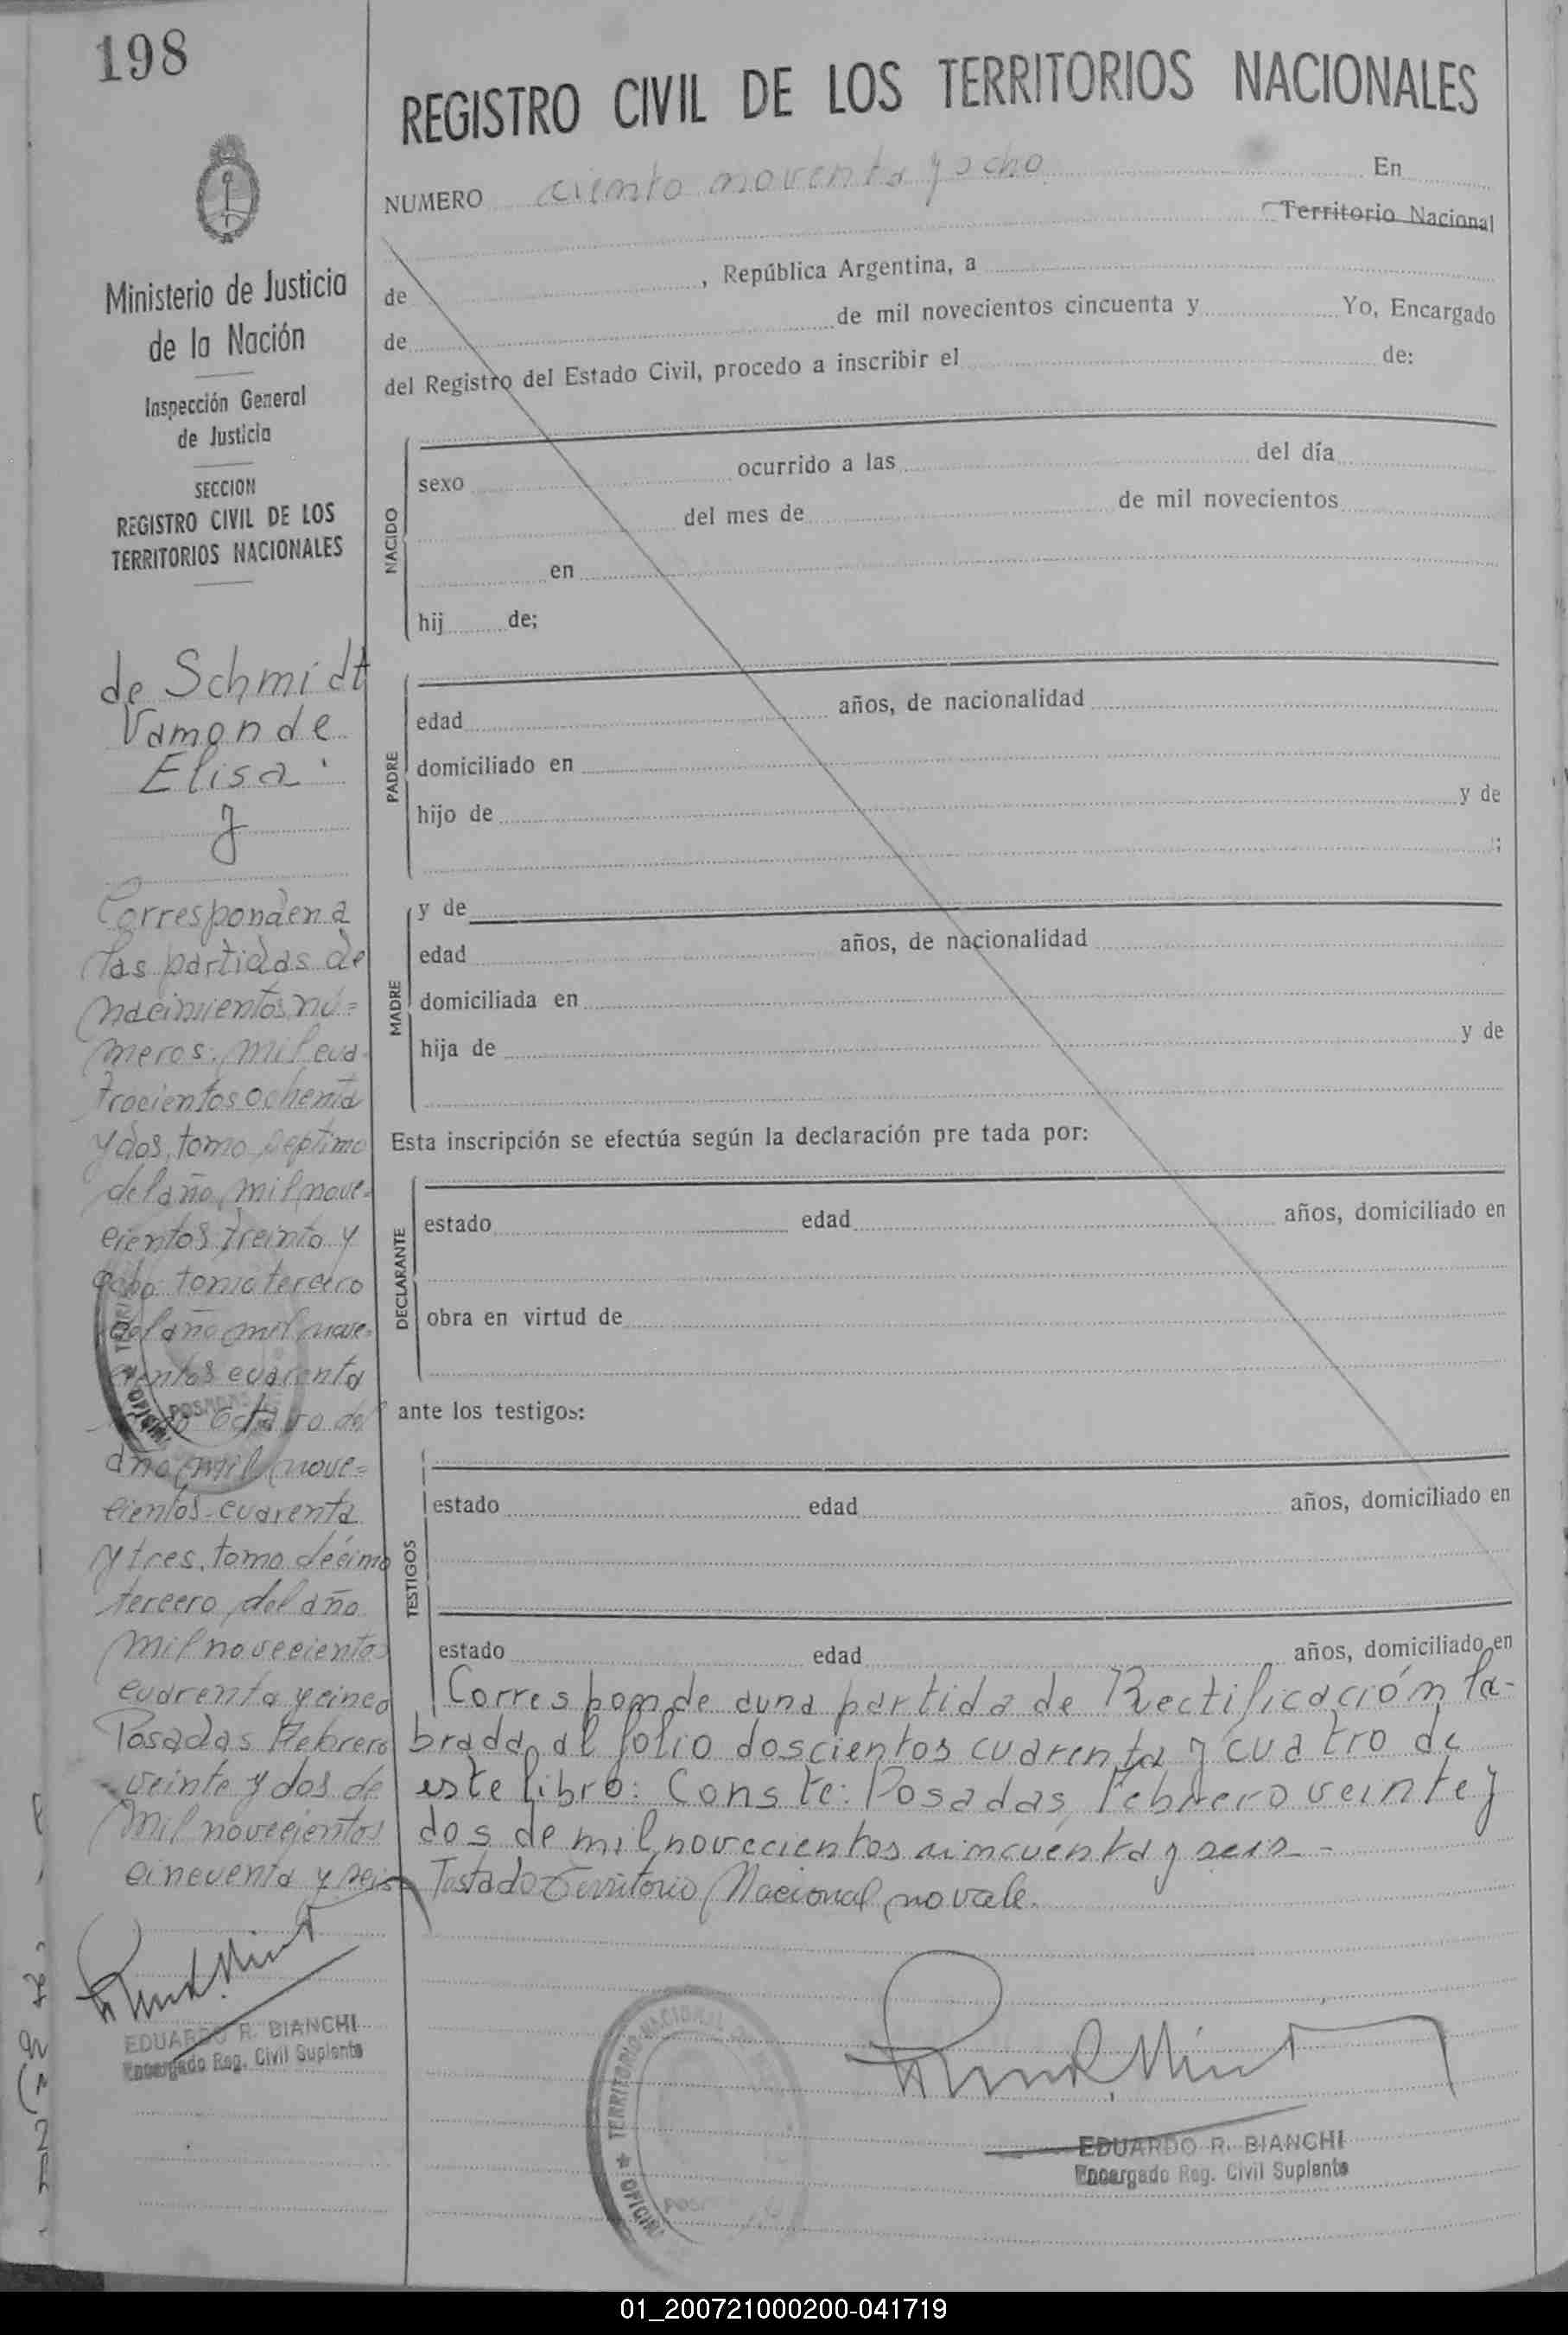 198
Ministerio de Justicia
de la Nación
Inspección General
de Justicia
SECCION
REGISTRO CIVIL DE LOS
TERRITORIOS NACIONALES
de Schmidt
Vamonde
Elisa
Corresponden a
las partidas de
nacimientos nú=
meros: mil cua-
trocientos ochenta
y dos, tomo septimo
del año mil nove=
cientos treinta y
ocho tomo tercero
del año mil nove-
cientos cuarenta
octavo del
año mil nove=
cientos cuarenta
y tres, tomo décimo
tercero del año
mil novecientos
cuarenta y cinco
Posadas Febrero
veinte y dos de
mil novecientos
cincuenta y seis
EDUARDO R. BIANCHI
Encargado Reg. Civil Suplente
REGISTRO CIVIL DE LOS TERRITORIOS NACIONALES
NUMERO ciento noventa y ocho En
Territorio Nacional
de , República Argentina, a
de de mil novecientos cincuenta y Yo, Encargado
del Registro del Estado Civil, procedo a inscribir el de:
NACIDO
sexo ocurrido a las del día
del mes de de mil novecientos
en
hij de;
PADRE
edad años, de nacionalidad
domiciliado en
hijo de y de
;
MADRE
y de
edad años, de nacionalidad
domiciliada en
hija de y de
Esta inscripción se efectúa según la declaración pre tada por:
DECLARANTE
estado edad años, domiciliado en
obra en virtud de
ante los testigos:
TESTIGOS
estado edad años, domiciliado en
estado edad años, domiciliado en
Corresponde a una partida de Rectificación la-
brada al folio doscientos cuarenta y cuatro de
este libro: Conste: Posadas, Febrero veinte y
dos de mil novecientos cincuenta y seis -
Testado Territorio Nacional no vale.
TERRITORIO NACIONAL
EDUARDO R. BIANCHI
Encargado Reg. Civil Suplente
01_200721000200-041719